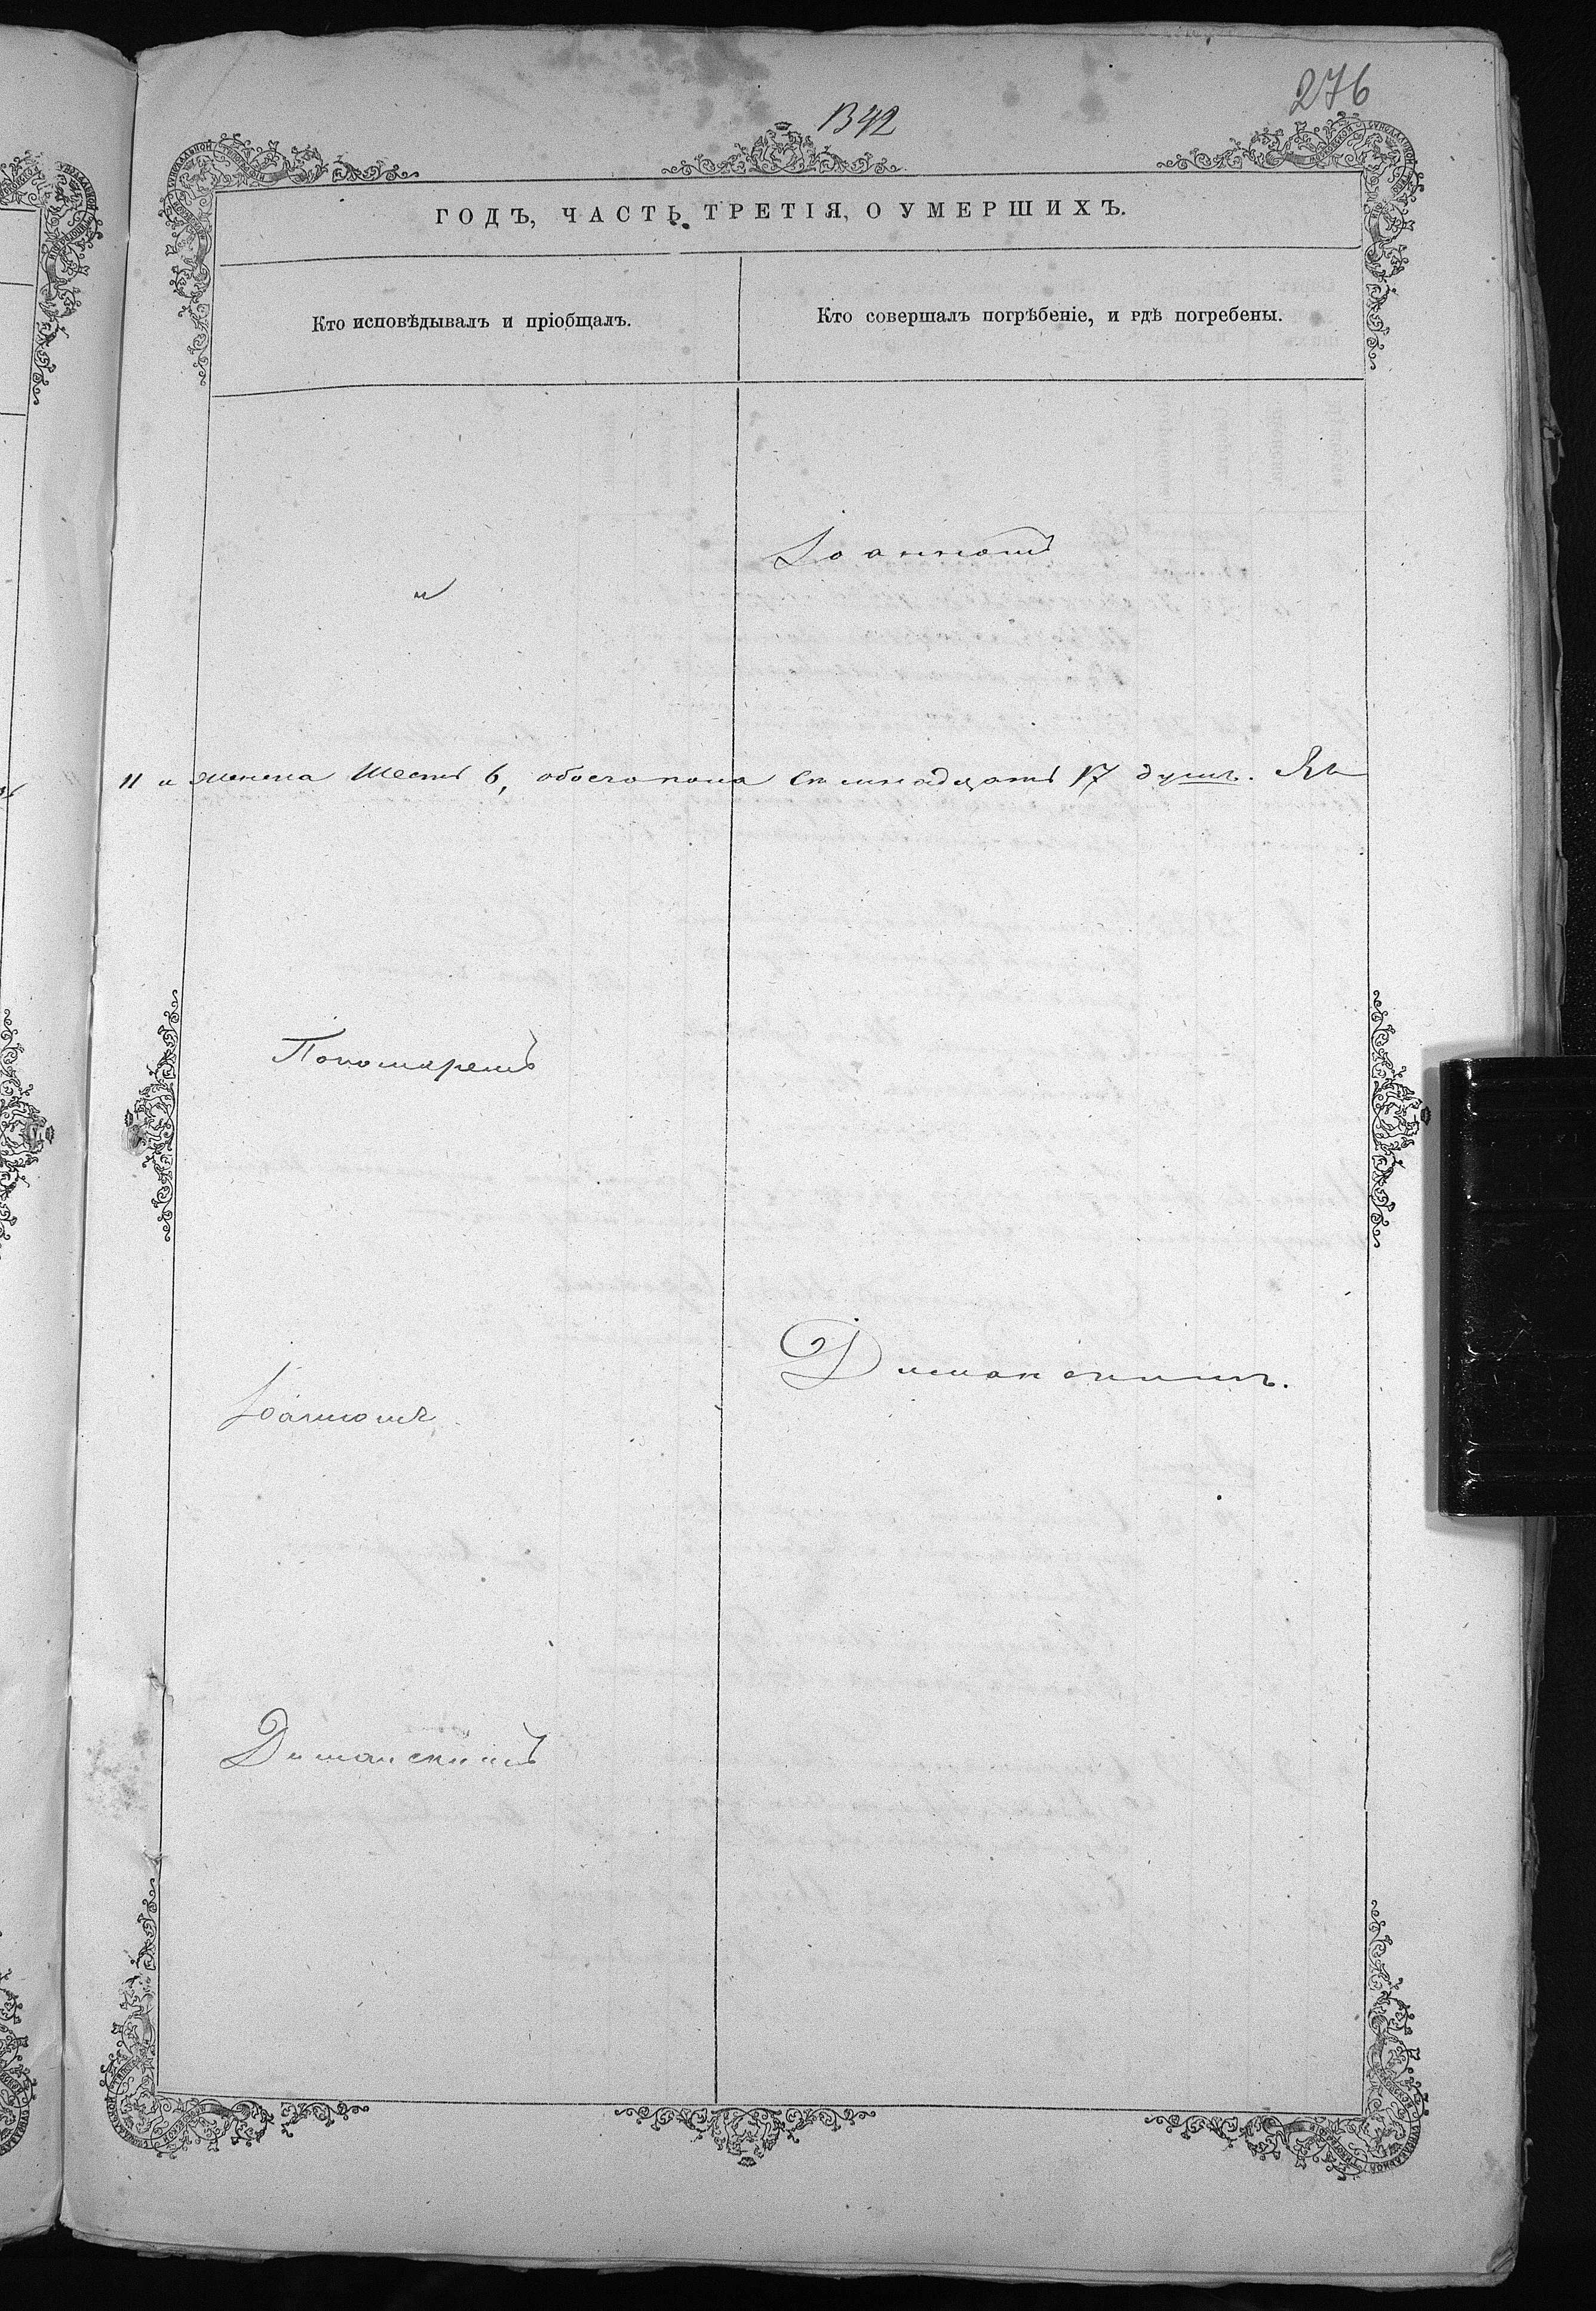 276
1342
ГОДЪ, ЧАСТЬ ТРЕТІЯ, О УМЕРШИХЪ.
Кто исповѣдывалъ и пріобщалъ.
Кто совершалъ погрѣбеніе, и гдѣ погребены.
Іоанномъ
и
11 и женска шесть 6, обоего пола семнадцать 17 душъ.
Пономаремъ
Диманскимъ.
Іоанномъ
Диманскимъ